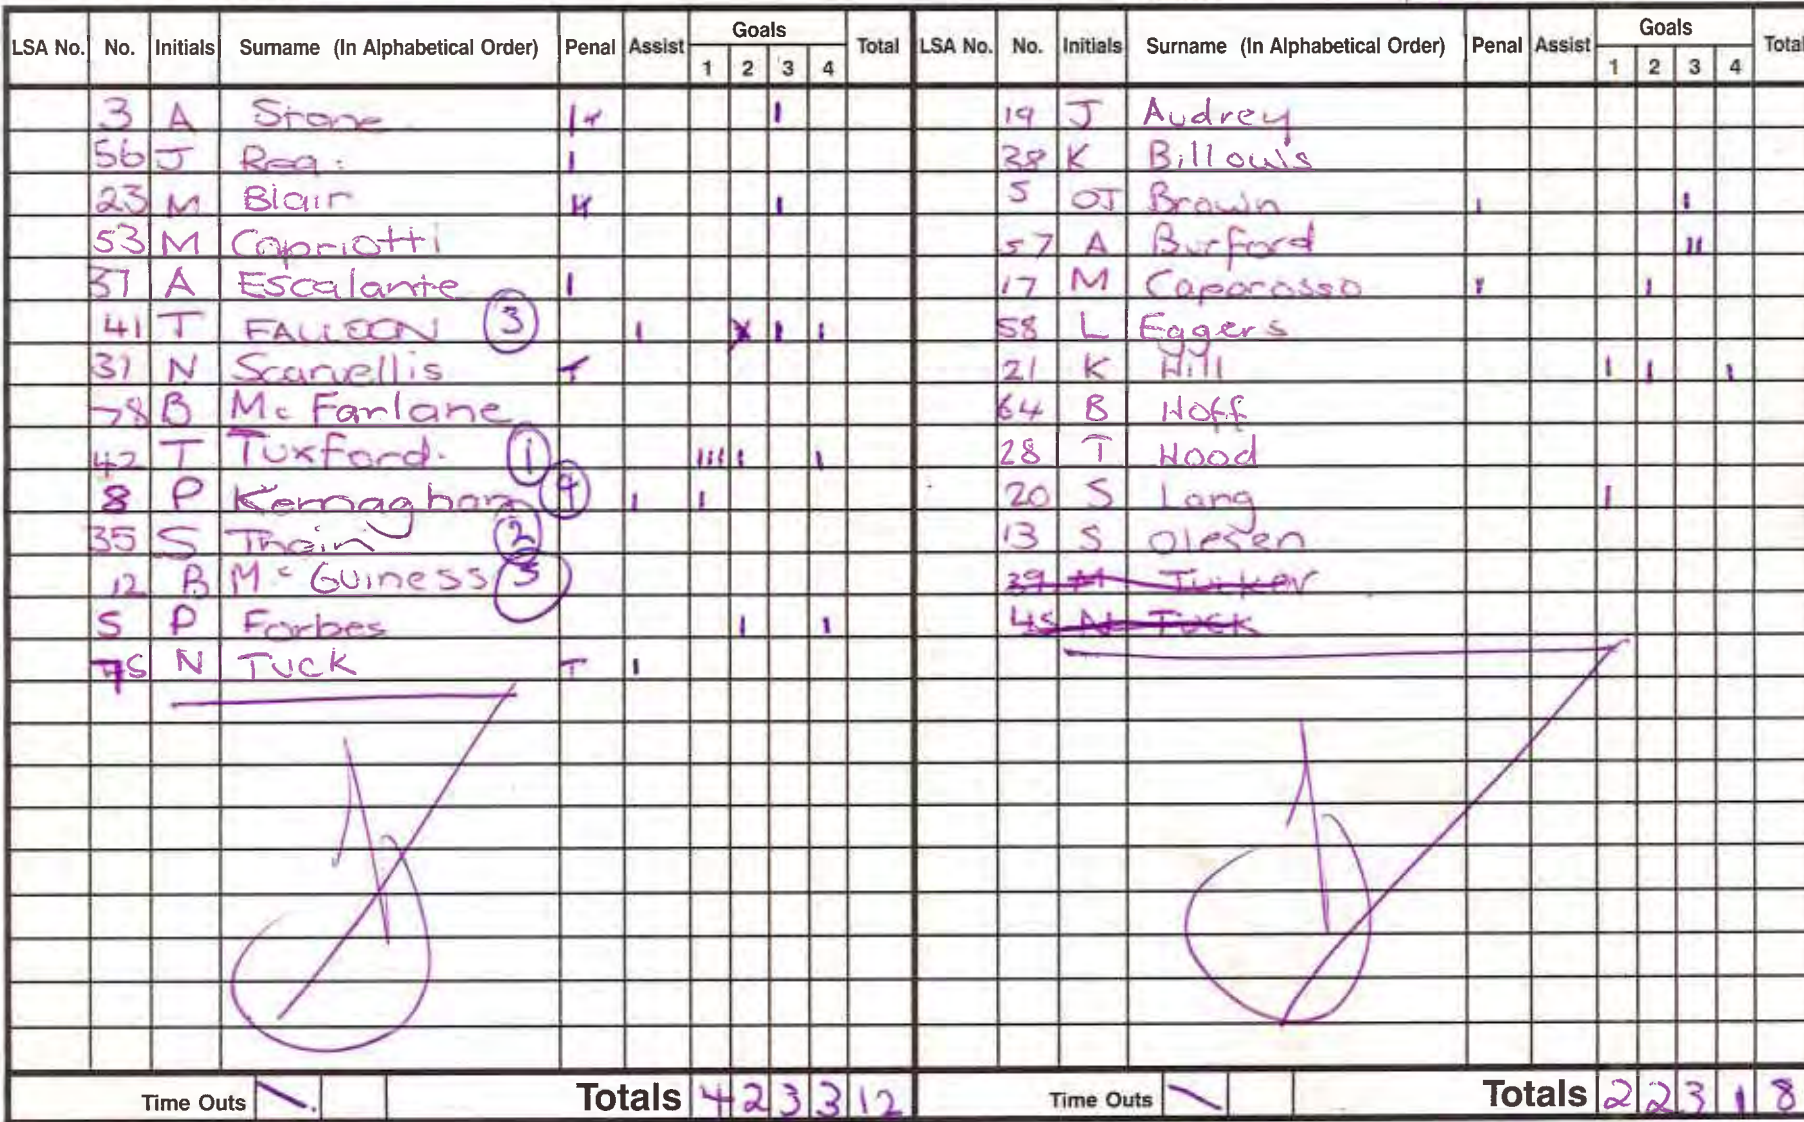 LSA No. No. Initials Surname (In Alphabetical Order) Penal Assist Goals 1 2 3 4 Total
3 A Stone
56 J Rea
23 M Blair
53 M Capriotti
37 A Escalante
41 T FALLOON 3
31 N Scarvellis
78 B McFarlane
42 T Tuxford. 1
8 P Kernaghan 4
35 S Thain 2
12 B McGuiness 5
5 P Forbes
75 N TUCK
Time Outs Totals 4 2 3 3 12
LSA No. No. Initials Surname (In Alphabetical Order) Penal Assist Goals 1 2 3 4 Total
19 J Audrey
38 K Billouis
5 OJ Brown
57 A Burford
17 M Caporosso
58 L Eggers
21 K Hill
64 B Hoff
28 T Hood
20 S Lang
13 S Olesen
39 M Tucker
45 N Tuck
Time Outs Totals 2 2 3 1 8